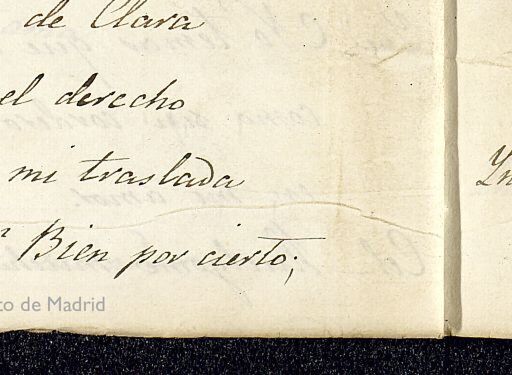 de Clara
el derecho
mi traslada
Bien por cierto;
to de Madrid